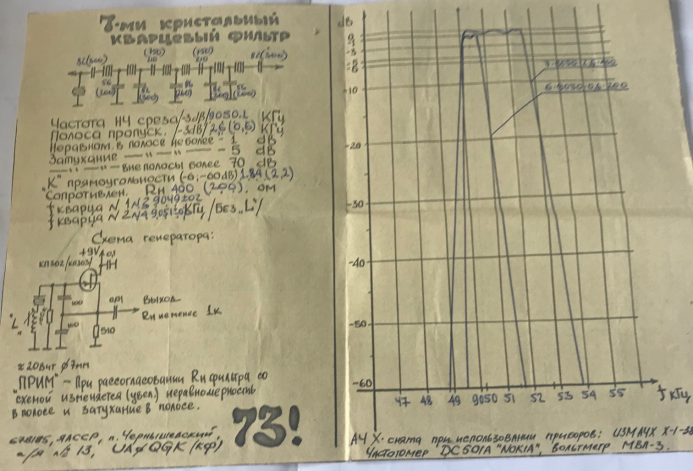 7-ми кристальный
кварцевый фильтр
82(300)
(150)
210
(150)
210
82(300)
Частота НЧ среза/-3dB/9050.1 КГц
Полоса пропуск. /-3dB/2,6(0,6) КГц
Неравном. в полосе не более - 1 dB
Затухание —"— —"— - 5 dB
—"— —"— вне полосы более 70 dB
"К" прямоугольности (-6,-60dB) 1,84 (2,2)
Сопротивлен. Rн 400 (200), ом
f кварца N 1
f кварца N 2 КГц /без „L"/
Схема генератора:
+9V
КП302/КП303/
0,1
НН
"L"
100
100
0,01
Выход
Rн не менее 1к
510
≈20вит ϕ7мм
"ПРИМ" - При рассогласовании Rн фильтра со
схемой изменяется (увел.) неравномерность
в полосе и затухание в полосе.
678185, ЯАССР, п. Чернышевский,
п/я № 13, UAϕQGK (КФ)
73!
dB
-10
-20
-30
-40
-50
-60
47 48 49 9050 51 52 53 54 55 f кГц
АЧХ-снята при использовании приборов: ИЗМ АЧХ X-1-38
Частотомер DC501A "NOKIA", Вольтметр МВЛ-3.